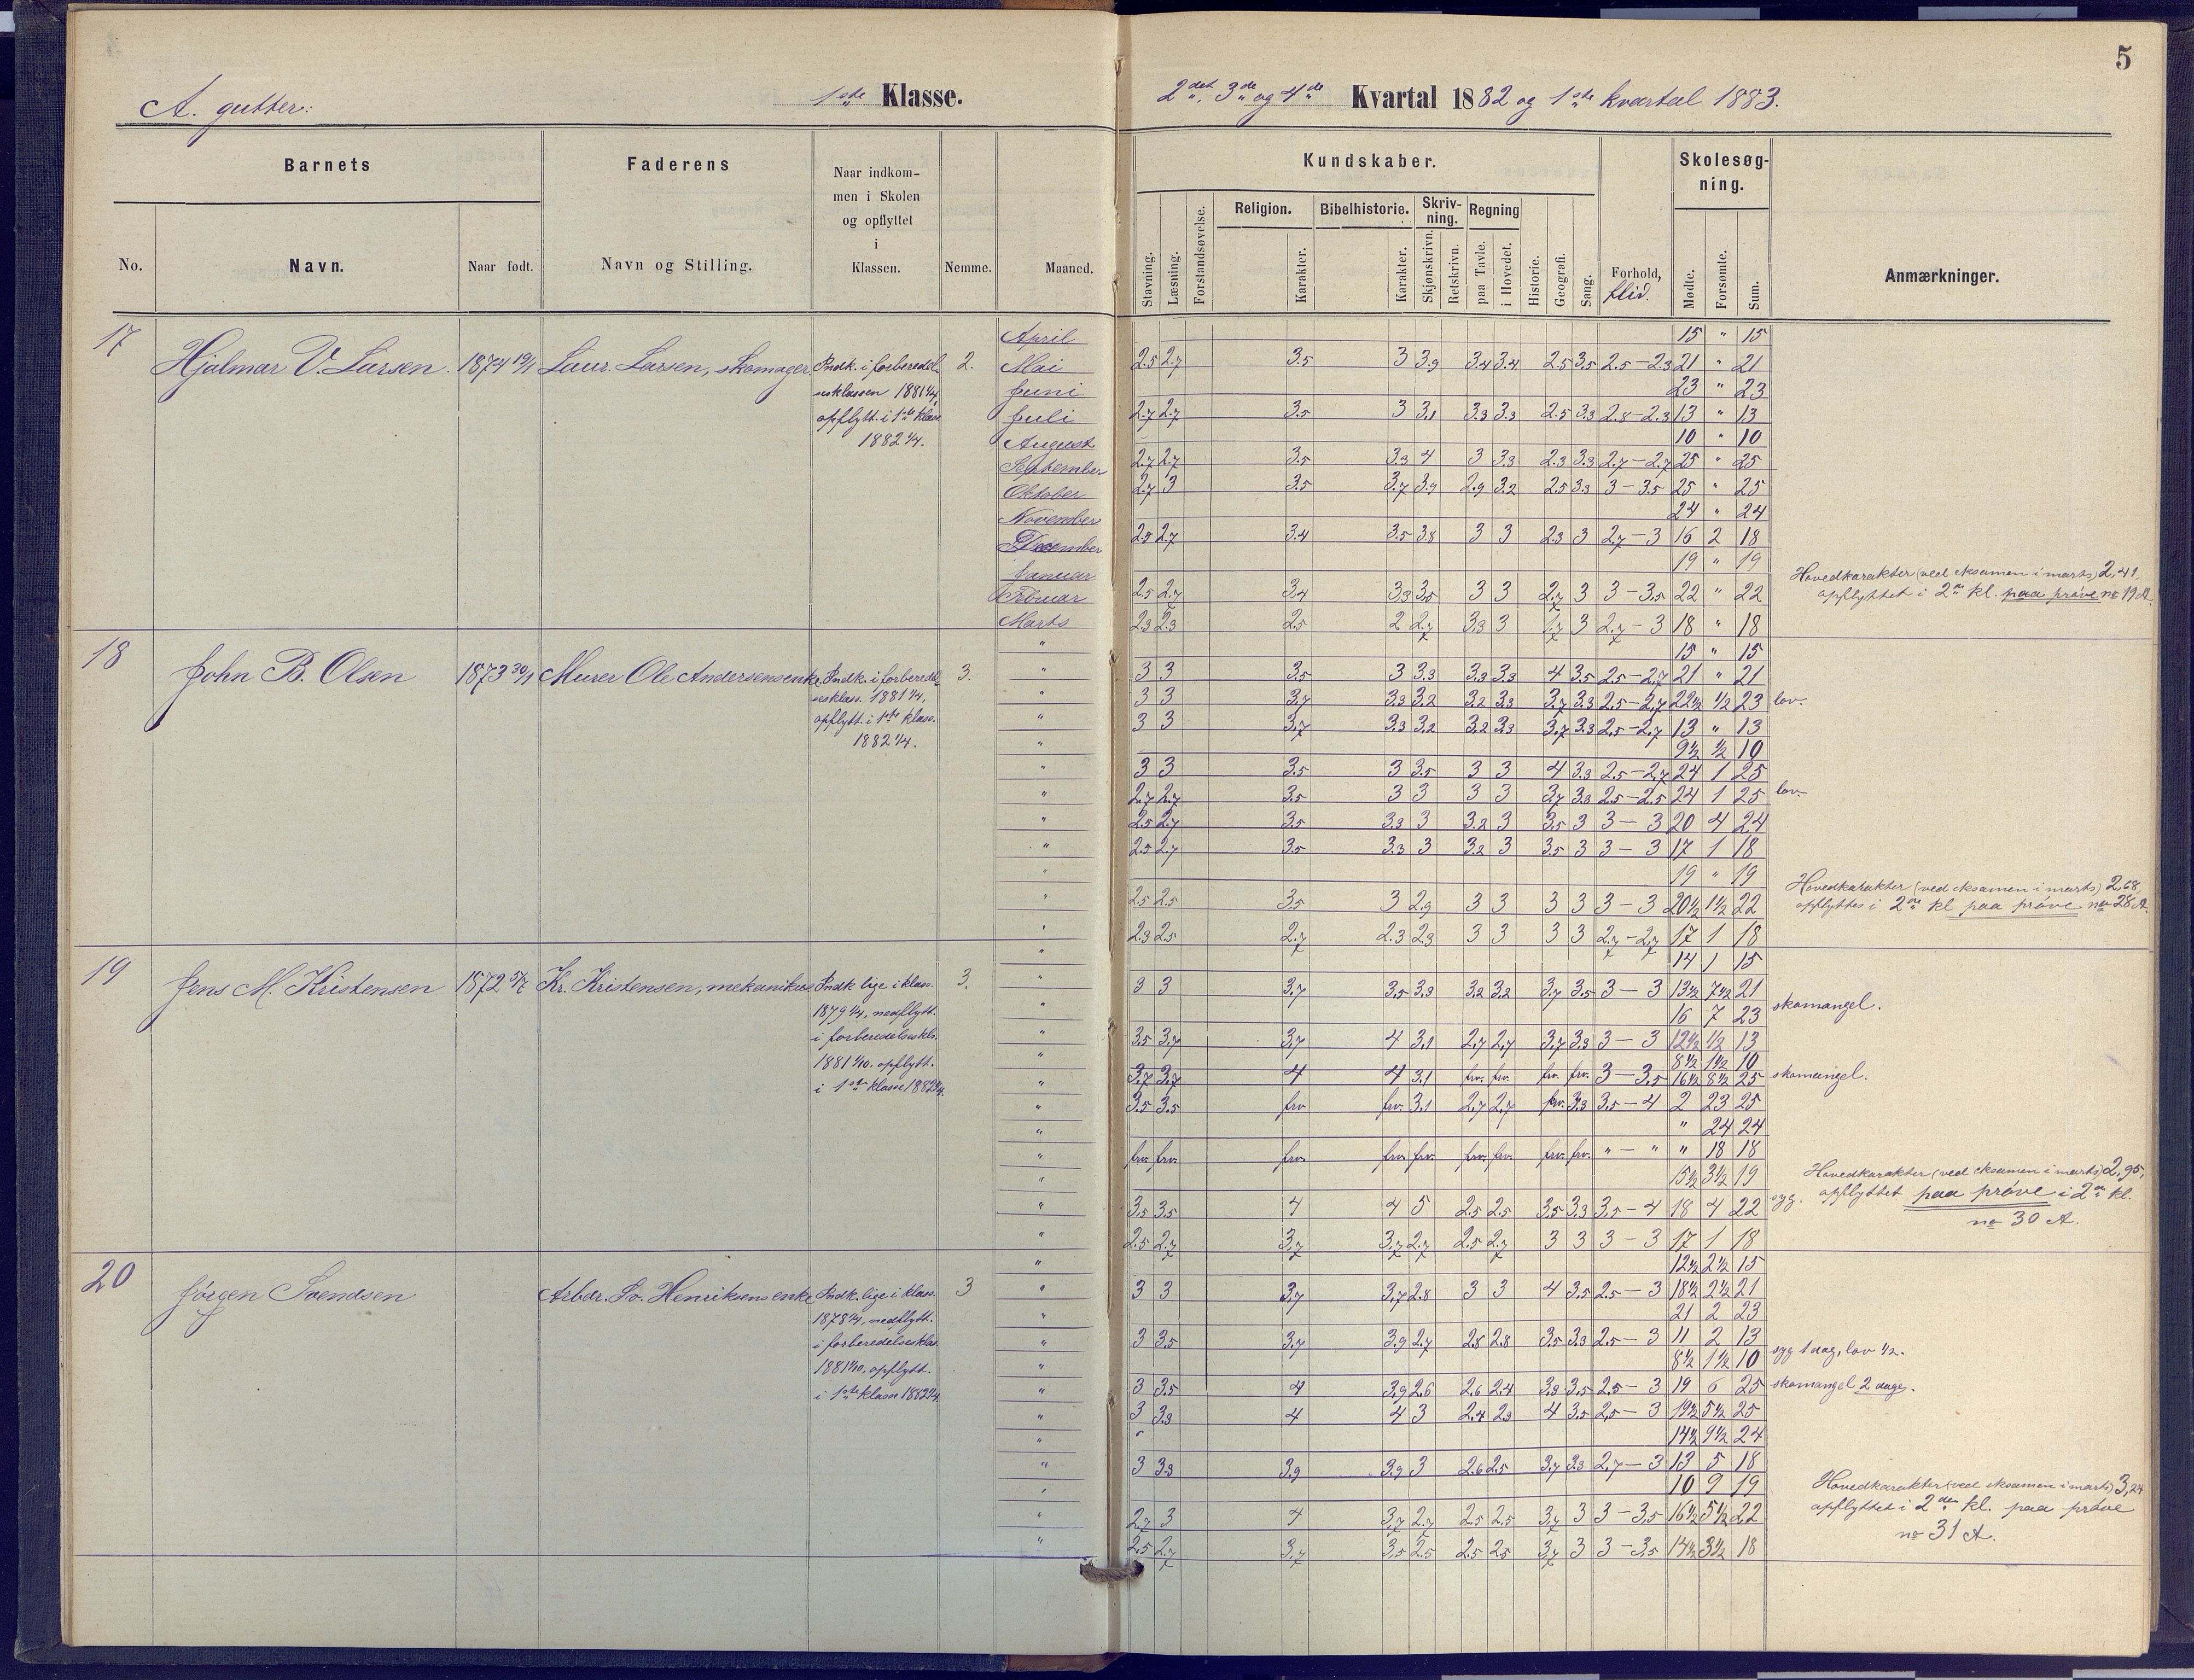 5
A. gutter.
1ste Klasse.
2det, 3de og 4de Kvartal 1882 og 1ste kvartal 1883.
Barnets
Faderens
Naar indkom-
men i Skolen
og opflyttet
i
Klassen.
No.
Navn.
Naar født.
Navn og Stilling.
Nemme.
Maaned.
Kundskaber.
Skolesøg-
ning.
Stavning.
Læsning.
Forstandsøvelse.
Religion.
Karakter.
Bibelhistorie.
Karakter.
Skriv-
ning.
Skjønskrivn.
Retskrivn.
Regning
paa Tavle.
i Hovedet.
Historie.
Geografi.
Sang.
Forhold,
flid.
Mødte.
Forsømte.
Sum.
Anmærkninger.
17 Hjalmar V. Larsen. 1874 19/1 Laur. Larsen, skomager. 2.
Indk. i forberedel-
sesklassen 1881 1/4,
opflytt. i 1ste klasse
1882 1/4.
April 15 " 15
Mai 2.5 2.7 3.5 3 3.9 3.4 3.4 2.5 3.5 2.5 - 2.3 21 " 21
Juni 23 " 23
Juli 2.7 2.7 3.5 3 3.1 3.3 3.3 2.5 3.3 2.8 - 2.3 13 " 13
August 10 " 10
September 2.7 2.7 3.5 3.3 4 3 3.3 2.3 3.3 2.7 - 2.7 25 " 25
Oktober 2.7 3 3.5 3.7 3.9 2.9 3.2 2.5 3.3 3 - 3.5 25 " 25
November 24 " 24
December 2.5 2.7 3.4 3.5 3.8 3 3 2.3 3 2.7 - 3 16 2 18
Januar 19 " 19
Februar 2.5 2.7 3.4 3.3 3.5 3 3 2.7 3 3 - 3.5 22 " 22
Marts 2.3 2.3 2.5 2 2.7 3.3 3 1.7 3 2.7 - 3 18 " 18
Hovedkarakter (ved eksamen i marts) 2,41,
opflyttet i 2de kl. paa prøve no 19 A.
18 John B. Olsen 1873 30/1 Murer Ole Andersens enke 3.
Indk. i forberedel-
sesklass. 1881 1/4,
opflytt. i 1ste klasse.
1882 1/4.
" 15 " 15
" 3 3 3.5 3 3.3 3.3 3.3 4 3.5 2.5 - 2.7 21 " 21
" 3 3 3.7 3.3 3.2 3.2 3.3 3.7 3.3 2.5 - 2.7 22 1/2 1/2 23 lov.
" 3 3 3.7 3.3 3.2 3.2 3.3 3.7 3.3 2.5 - 2.7 13 " 13
" 9 1/2 1/2 10
" 3 3 3.5 3 3.5 3 3 4 3.3 2.5 - 2.7 24 1 25
" 2.7 2.7 3.5 3 3 3 3 3.7 3.3 2.5 - 2.5 24 1 25 lov.
" 2.5 2.7 3.5 3.3 3 3.2 3 3.5 3 3 - 3 20 4 24
" 2.5 2.7 3.5 3.3 3 3.2 3 3.5 3 3 - 3 17 1 18
" 19 " 19
" 2.5 2.5 3.5 3 2.9 3 3 3 3 3 - 3 20 1/2 1 1/2 22
" 2.3 2.5 2.7 2.3 2.3 3 3 3 3 2.7 - 2.7 17 1 18
Hovedkarakter (ved eksamen i marts) 2,68,
opflyttes i 2de kl paa prøve no 28 A.
19 Jens M. Kristensen 1872 5/7 Kr. Kristensen, mekanikus 3.
Indk lige i klass.
1879 1/4, nedflytt.
i forberedelseskls.
1881 1/10. opflytt.
i 1ste klasse 1882 1/4.
" 14 1 15
" 3 3 3.7 3.5 3.3 3.2 3.2 3.7 3.5 3 - 3 13 1/2 7 1/2 21 skomangel.
" 16 7 23
" 3.5 3.7 3.7 4 3.1 2.7 2.7 3.7 3.3 3 - 3 12 1/2 1/2 13
" 8 1/2 1 1/2 10
" 3.7 3.7 4 4 3.1 frv. frv. frv. frv. 3 - 3.5 16 1/2 8 1/2 25 skomangel.
" 3.5 3.5 frv frv. 3.1 2.7 2.7 frv. 3.3 3.5 - 4 2 23 25
" " 24 24
" frv. frv. frv. frv. frv. frv. frv. frv. frv. " - " " 18 18
" 15 1/2 3 1/2 19
" 3.5 3.5 4 4 5 2.5 2.5 3.5 3.3 3.5 - 4 18 4 22 syg.
" 2.5 2.7 3.7 3.7 2.7 2.5 2.7 3 3 3 - 3 17 1 18
Hovedkarakter (ved eksamen i marts) 2,95,
opflyttet paa prøve i 2de kl.
no 30 A.
20 Jörgen Svendsen Arbdr. Sv. Henriksens enke 3
Indk. lige i klass.
1878 1/4, nedflytt.
i forberedelsesklas
1881 1/10. opflytt.
i 1ste klasse 1882 1/4.
" 12 1/2 2 1/2 15
" 3 3 3.7 3.7 2.8 3 3 4 3.5 2.5 - 3 18 1/2 2 1/2 21
" 21 2 23
" 3 3.5 3.7 3.9 2.7 2.8 2.8 3.5 3.3 2.5 - 3 11 2 13
" 8 1/2 1 1/2 10 syg 1 dag, lov 1/2.
" 3 3.5 4 3.9 2.6 2.6 2.4 3.3 3.5 2.5 - 3 19 6 25 skomangel 2 dage.
" 3 3.3 4 4 3 2.4 2.3 4 3.5 2.5 - 3 19 1/2 5 1/2 25
" 14 1/2 9 1/2 24
" 3 3.3 3.9 3.9 3 2.6 2.5 3.7 3.3 2.7 - 3 13 5 18
" 10 9 19
" 2.7 3 4 3.7 2.7 2.5 2.5 3.7 3 3 - 3.5 16 1/2 5 1/2 22
" 2.5 2.7 3.7 3.5 2.5 2.5 2.5 3.7 3 3 - 3.5 14 1/2 3 1/2 18
Hovedkarakter (ved eksamen i marts) 3,24
opflyttet i 2den kl. paa prøve
no 31 A.